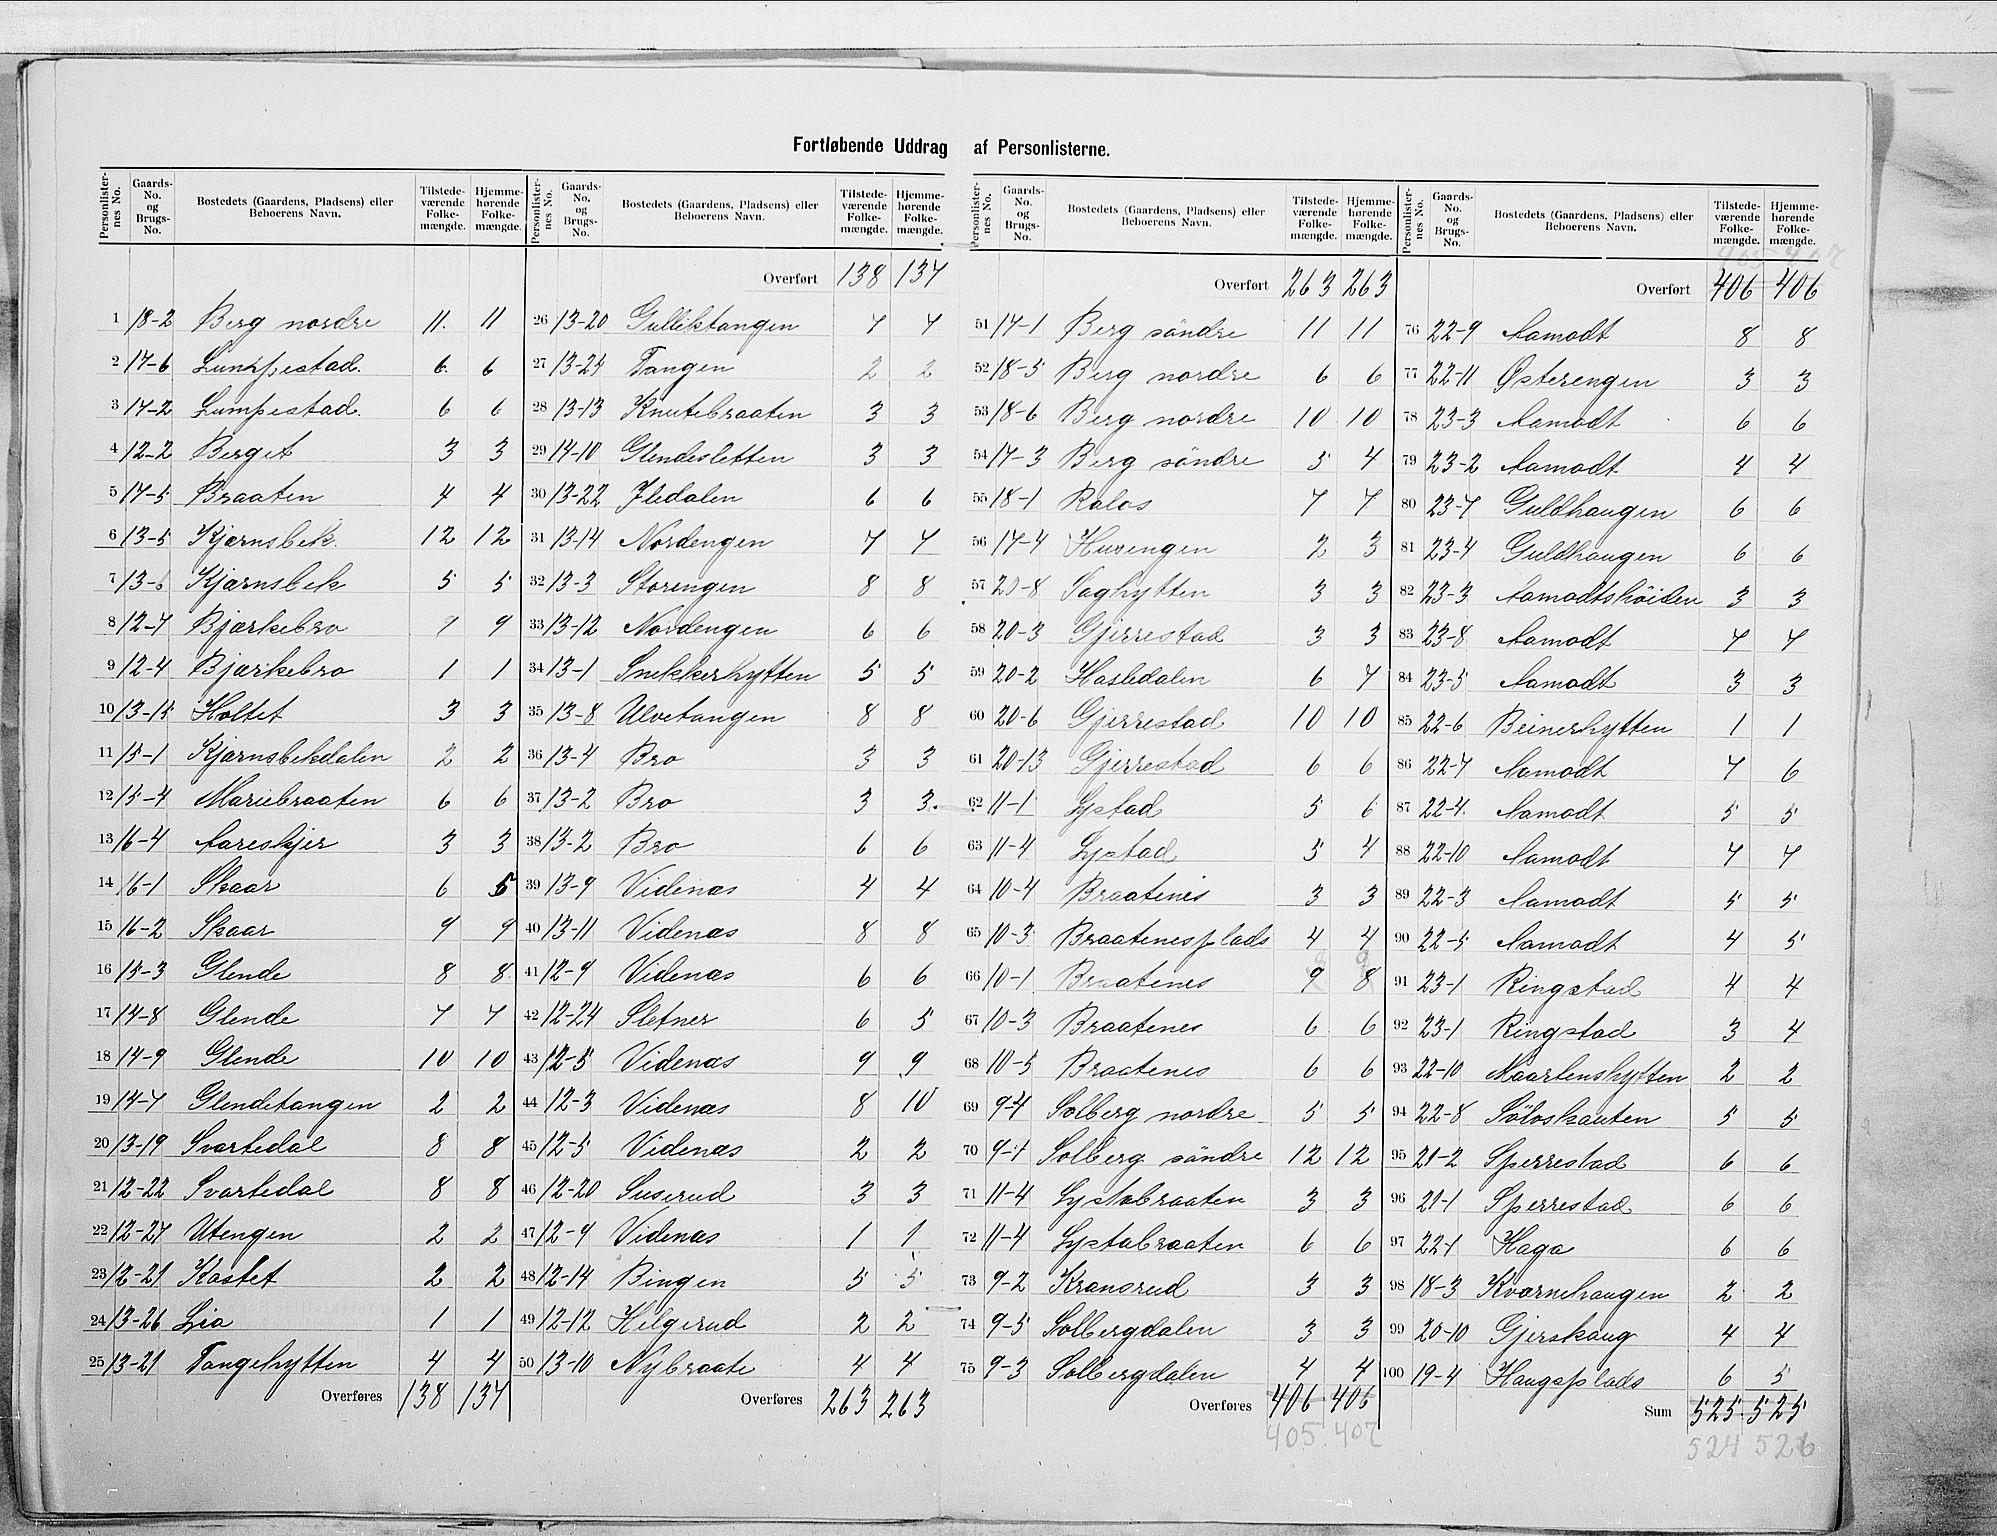 Fortløbende Uddrag af Personlisterne.
Personlister-nes No. Gaards-No. og Brugs-No. Bostedets (Gaardens, Pladsens) eller Beboerens Navn. Tilstede-værende Folke-mængde. Hjemme-hørende Folke-mængde.
1 18-2 Berg nordre 11. 11
2 17-6 Lumpestad. 6. 6
3 17-2 Lumpestad. 6 6
4 12-2 Berget 3 3
5 17-5 Braaten 4 4
6 13-5 Kjærnsbek. 12 12
7 13-6 Kjærnsbek 5 5
8 12-7 Bjærkebro 9 9
9 12-4 Bjærkebro 1 1
10 13-15 Holtet 3 3
11 15-1 Kjærnsbekdalen 2 2
12 15-4 Mariebraaten 6 6
13 16-4 Aareskjer 3 3
14 16-1 Skaar 6 5
15 16-2 Skaar 9 9
16 15-3 Glende 8 8
17 14-8 Glende 7 7
18 14-9 Glende 10 10
19 14-7 Glendetangen 2 2
20 13-19 Svartedal 8 8
21 12-22 Svartedal 8 8
22 12-27 Utengen 2 2
23 12-21 Kastet 2 2
24 13-26 Lia 1 1
25 13-21 Tangehytten 4 4
Overføres 138 137
Personlister-nes No. Gaards-No. og Brugs-No. Bostedets (Gaardens, Pladsens) eller Beboerens Navn. Tilstede-værende Folke-mængde. Hjemme-hørende Folke-mængde.
Overført 138 137
26 13-20 Gulliktangen 7 7
27 13-24 Tangen 2 2
28 13-13 Knutebraaten 3 3
29 14-10 Glendesletten 3 3
30 13-22 Iledalen 6 6
31 13-14 Nordengen 7 7
32 13-3 Storengen 8 8
33 13-12 Nordengen 6 6
34 13-1 Snekkerhytten 5 5
35 13-8 Ulvetangen 8 8
36 13-4 Bro 3 3
37 13-2 Bro 3 3.
38 13-2 Bro 6 6
39 13-9 Videnæs 4 4
40 13-11 Videnæs 8 8
41 12-9 Videnæs 6 6
42 12-24 Sletner 6 5
43 12-5 Videnæs 9 9
44 12-3 Videnæs 8 10
45 12-5 Videnæs 2 2
46 12-20 Suserud 3 3
47 12-9 Videnæs 1 1
48 12-14 Bingen 5 5
49 12-12 Helgerud 2 2
50 13-10 Nybraate 4 4
Overføres 263 263
Personlister-nes No. Gaards-No. og Brugs-No. Bostedets (Gaardens, Pladsens) eller Beboerens Navn. Tilstede-værende Folke-mængde. Hjemme-hørende Folke-mængde.
Overført 263 263
51 17-1 Berg söndre 11 11
52 18-5 Berg nordre 6 6
53 18-6 Berg nordre 10 10
54 17-3 Berg söndre 5 4
55 18-1 Ralos 7 7
56 17-4 Hurengen 2 3
57 20-8 Saghytten 3 3
58 20-3 Gjerrestad 3 3
59 20-2 Hasledalen 6 7
60 20-6 Gjerrestad 10 10
61 20-13 Gjerrestad 6 6
62 11-1 Lystad 5 6
63 11-4 Lystad 5 4
64 10-4 Braatenes 3 3
65 10-3 Braatenesplads 4 4
66 10-1 Braatenes 9 8
67 10-3 Braatenes 6 6
68 10-5 Braatenes 6 6
69 9-4 Solberg nordre 5 5
70 9-1 Solberg söndre 12 12
71 11-4 Lystabraaten 3 3
72 11-4 Lystabraaten 6 6
73 9-2 Kransrud 3 3
74 9-5 Solbergdalen 3 3
75 9-3 Solbergdalen 4 4
Overføres 406 406
405. 407
Personlister-nes No. Gaards-No. og Brugs-No. Bostedets (Gaardens, Pladsens) eller Beboerens Navn. Tilstede-værende Folke-mængde. Hjemme-hørende Folke-mængde.
405 407
Overført 406 406
76 22-9 Aamodt 8 8
77 22-11 Østerengen 3 3
78 23-3 Aamodt 6 6
79 23-2 Aamodt 4 4
80 23-7 Guldhaugen 6 6
81 23-4 Guldhaugen 6 6
82 23-3 Aamodtshöiden 3 3
83 23-8. Aamodt 7 7
84 23-5 Aamodt 3 3
85 22-6 Beinerhytten 1 1
86 22-7 Aamodt 7 6
87 22-4. Aamodt 5 5
88 22-10 Aamodt 7 7
89 22-3 Aamodt 5 5
90 22-5 Aamodt 4 5
91 23-1 Ringstad 4 4
92 23-1 Ringstad 3 4
93 22-10 Maartenshytten 2 2
94 22-8 Söloskauten 5 5
95 21-2 Sperrestad 6 6
96 21-1 Sperrestad 6 6
97 22-1 Haga 6 6
98 18-3 Kværnehaugen 2 2
99 20-10 Gjerskaug 4 4
100 19-4 Haugsplads 6 5
Sum 525. 525
524 526